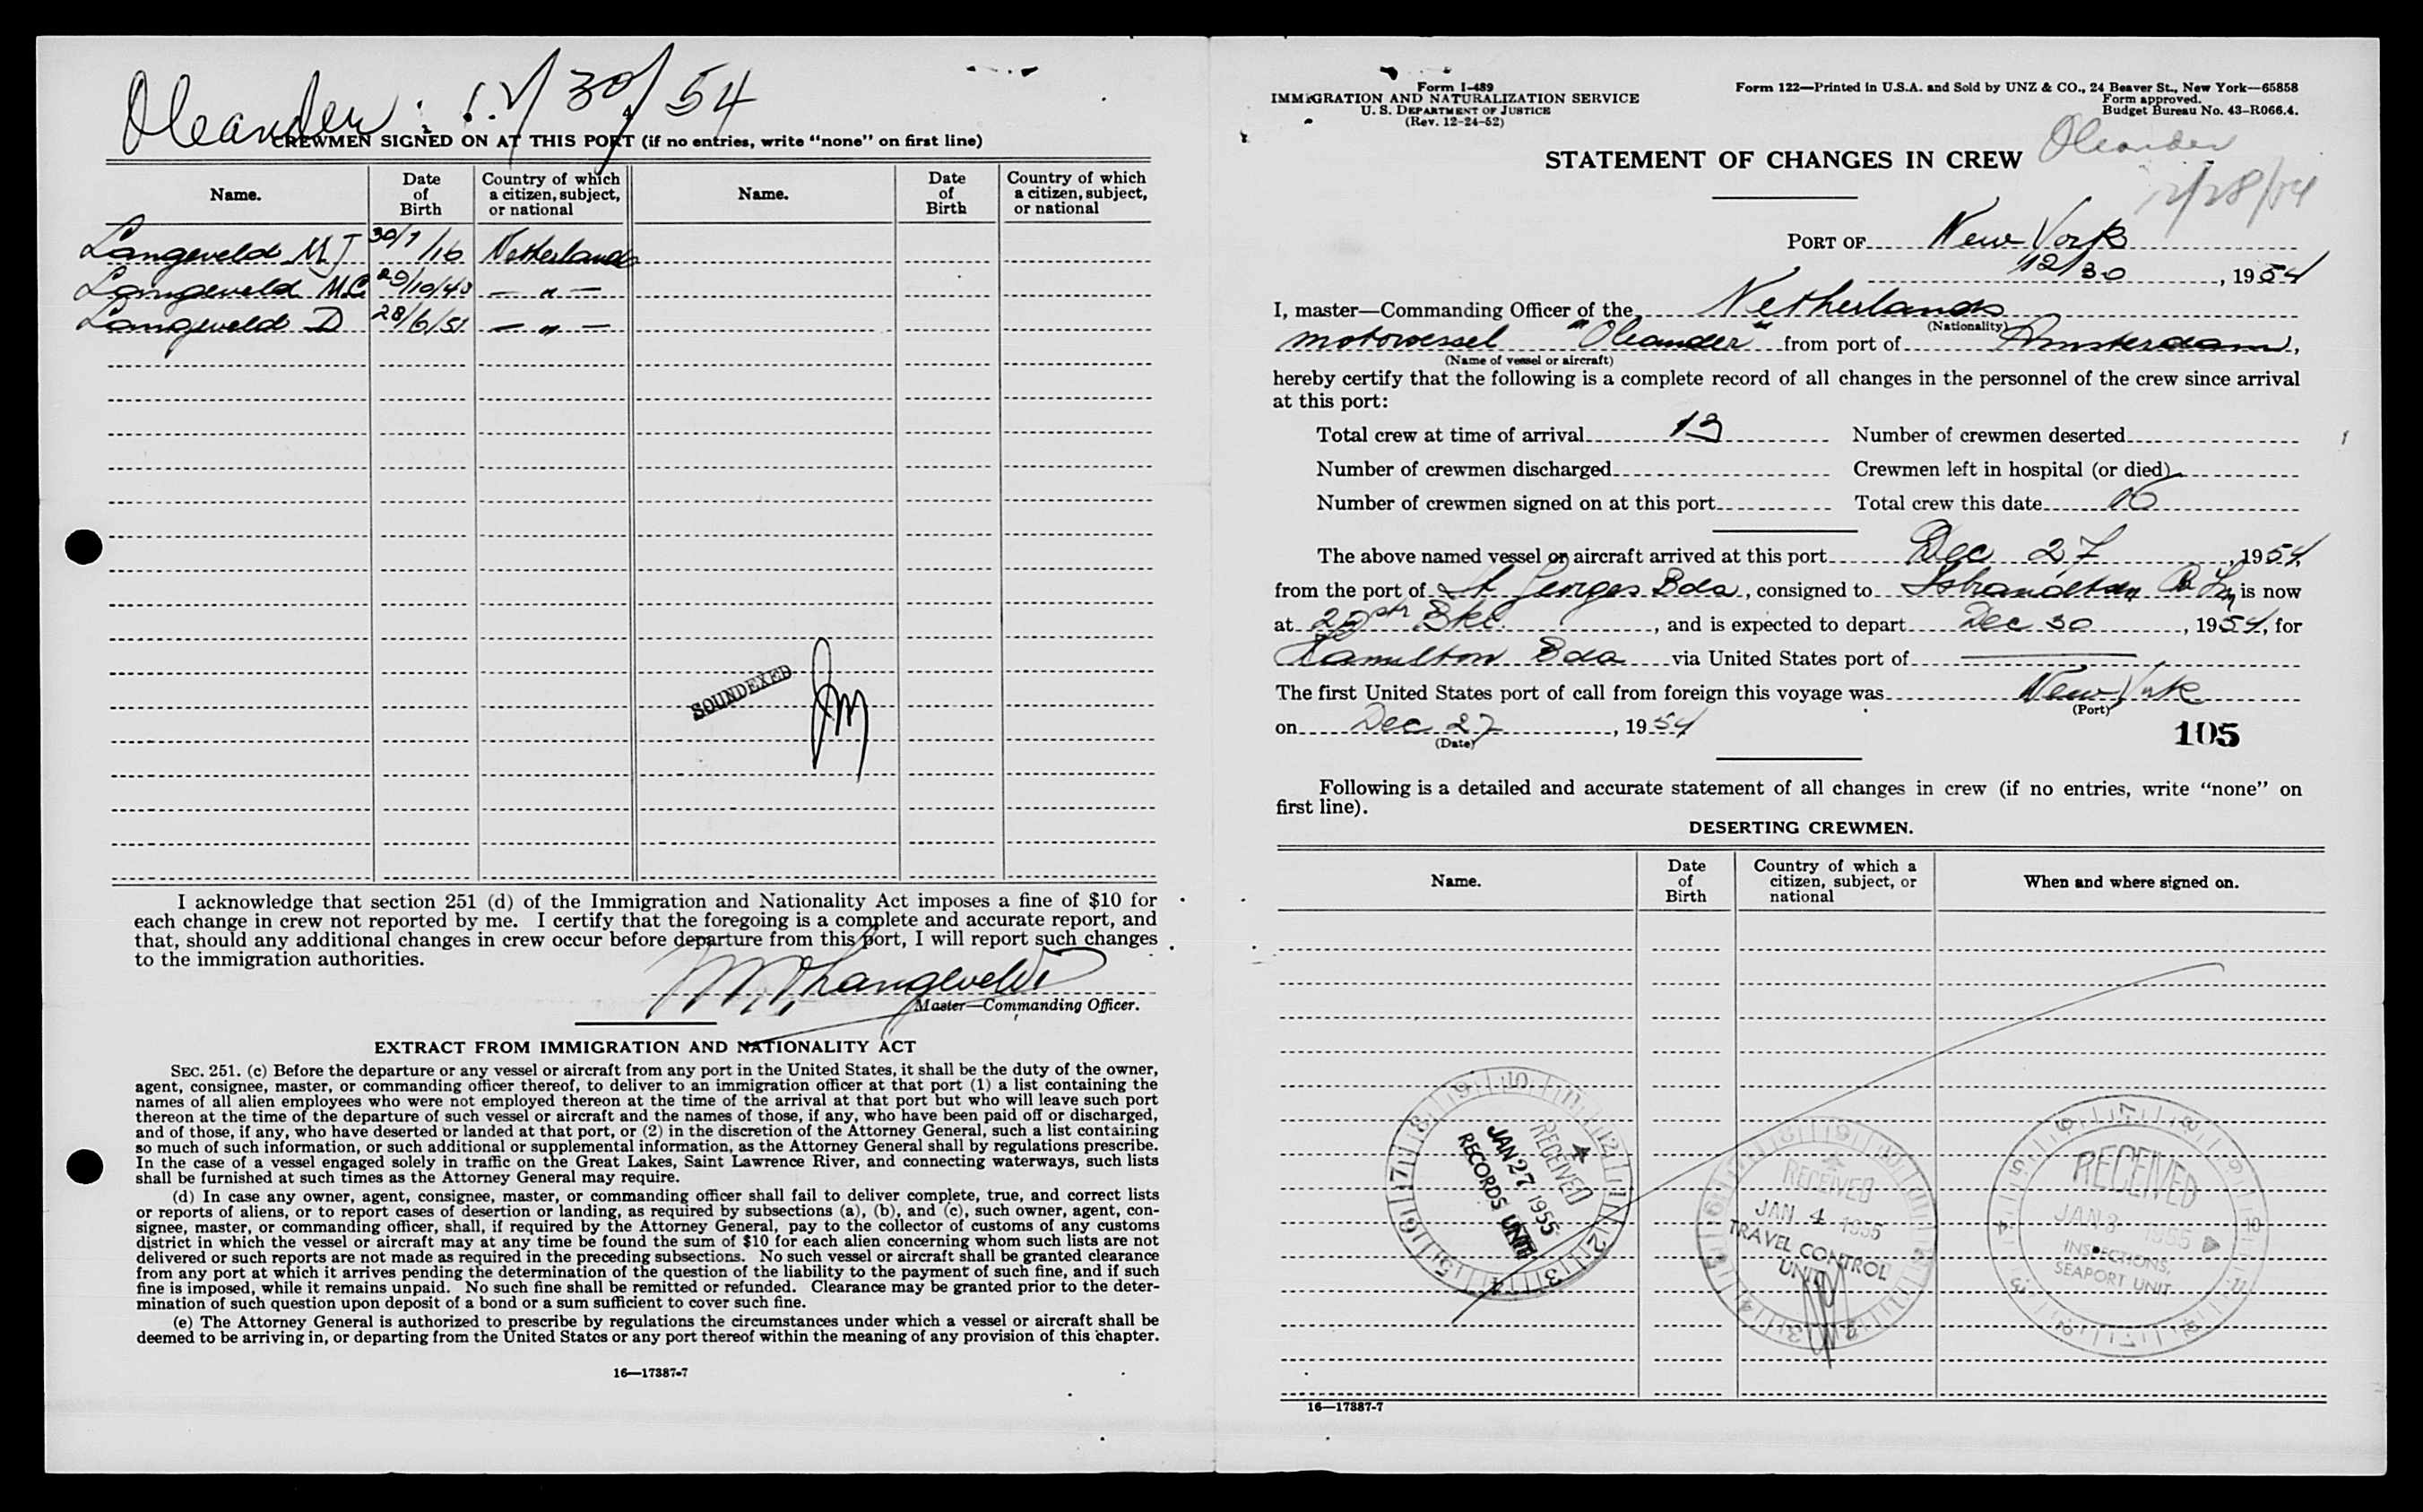 Oleander 12/30/54
CREWMEN SIGNED ON AT THIS PORT (if no entries, write “none” on first line)
Name. Date of Birth Country of which a citizen, subject, or national Name. Date of Birth Country of which a citizen, subject, or national
Langeveld M.J. 30/7/16 Netherlands
Langeveld M.C. 29/10/43 — " —
Langeveld D 28/6/51 — " —
SOUNDEXED
I acknowledge that section 251 (d) of the Immigration and Nationality Act imposes a fine of $10 for
each change in crew not reported by me. I certify that the foregoing is a complete and accurate report, and
that, should any additional changes in crew occur before departure from this port, I will report such changes
to the immigration authorities.
M.J. Langeveld
Master—Commanding Officer.
EXTRACT FROM IMMIGRATION AND NATIONALITY ACT
SEC. 251. (c) Before the departure or any vessel or aircraft from any port in the United States, it shall be the duty of the owner,
agent, consignee, master, or commanding officer thereof, to deliver to an immigration officer at that port (1) a list containing the
names of all alien employees who were not employed thereon at the time of the arrival at that port but who will leave such port
thereon at the time of the departure of such vessel or aircraft and the names of those, if any, who have been paid off or discharged,
and of those, if any, who have deserted or landed at that port, or (2) in the discretion of the Attorney General, such a list containing
so much of such information, or such additional or supplemental information, as the Attorney General shall by regulations prescribe.
In the case of a vessel engaged solely in traffic on the Great Lakes, Saint Lawrence River, and connecting waterways, such lists
shall be furnished at such times as the Attorney General may require.
(d) In case any owner, agent, consignee, master, or commanding officer shall fail to deliver complete, true, and correct lists
or reports of aliens, or to report cases of desertion or landing, as required by subsections (a), (b), and (c), such owner, agent, con-
signee, master, or commanding officer, shall, if required by the Attorney General, pay to the collector of customs of any customs
district in which the vessel or aircraft may at any time be found the sum of $10 for each alien concerning whom such lists are not
delivered or such reports are not made as required in the preceding subsections. No such vessel or aircraft shall be granted clearance
from any port at which it arrives pending the determination of the question of the liability to the payment of such fine, and if such
fine is imposed, while it remains unpaid. No such fine shall be remitted or refunded. Clearance may be granted prior to the deter-
mination of such question upon deposit of a bond or a sum sufficient to cover such fine.
(e) The Attorney General is authorized to prescribe by regulations the circumstances under which a vessel or aircraft shall be
deemed to be arriving in, or departing from the United States or any port thereof within the meaning of any provision of this chapter.
16—17387-7
Form I-489
IMMIGRATION AND NATURALIZATION SERVICE
U. S. DEPARTMENT OF JUSTICE
(Rev. 12-24-52)
Form 122—Printed in U.S.A. and Sold by UNZ & CO., 24 Beaver St., New York—65858
Form approved.
Budget Bureau No. 43-R066.4.
STATEMENT OF CHANGES IN CREW
Oleander
12/28/54
PORT OF New York
12/30, 1954
I, master—Commanding Officer of the Netherlands
(Nationality)
motorvessel "Oleander" from port of Amsterdam,
(Name of vessel or aircraft)
hereby certify that the following is a complete record of all changes in the personnel of the crew since arrival
at this port:
Total crew at time of arrival 13 Number of crewmen deserted
Number of crewmen discharged Crewmen left in hospital (or died)
Number of crewmen signed on at this port Total crew this date 16
The above named vessel or aircraft arrived at this port Dec 27, 1954
from the port of St Georges Bda, consigned to is now
at Bkl., and is expected to depart Dec 30, 1954, for
Hamilton Bda via United States port of —
The first United States port of call from foreign this voyage was New York
(Port)
on Dec 27, 1954
(Date)
105
Following is a detailed and accurate statement of all changes in crew (if no entries, write “none” on
first line).
DESERTING CREWMEN.
Name. Date of Birth Country of which a citizen, subject, or national When and where signed on.
RECEIVED
JAN 27 1955
RECORDS UNIT
RECEIVED
JAN 4 1955
TRAVEL CONTROL
UNIT
RECEIVED
JAN 3 1955
INSPECTIONS,
SEAPORT UNIT
16—17387-7